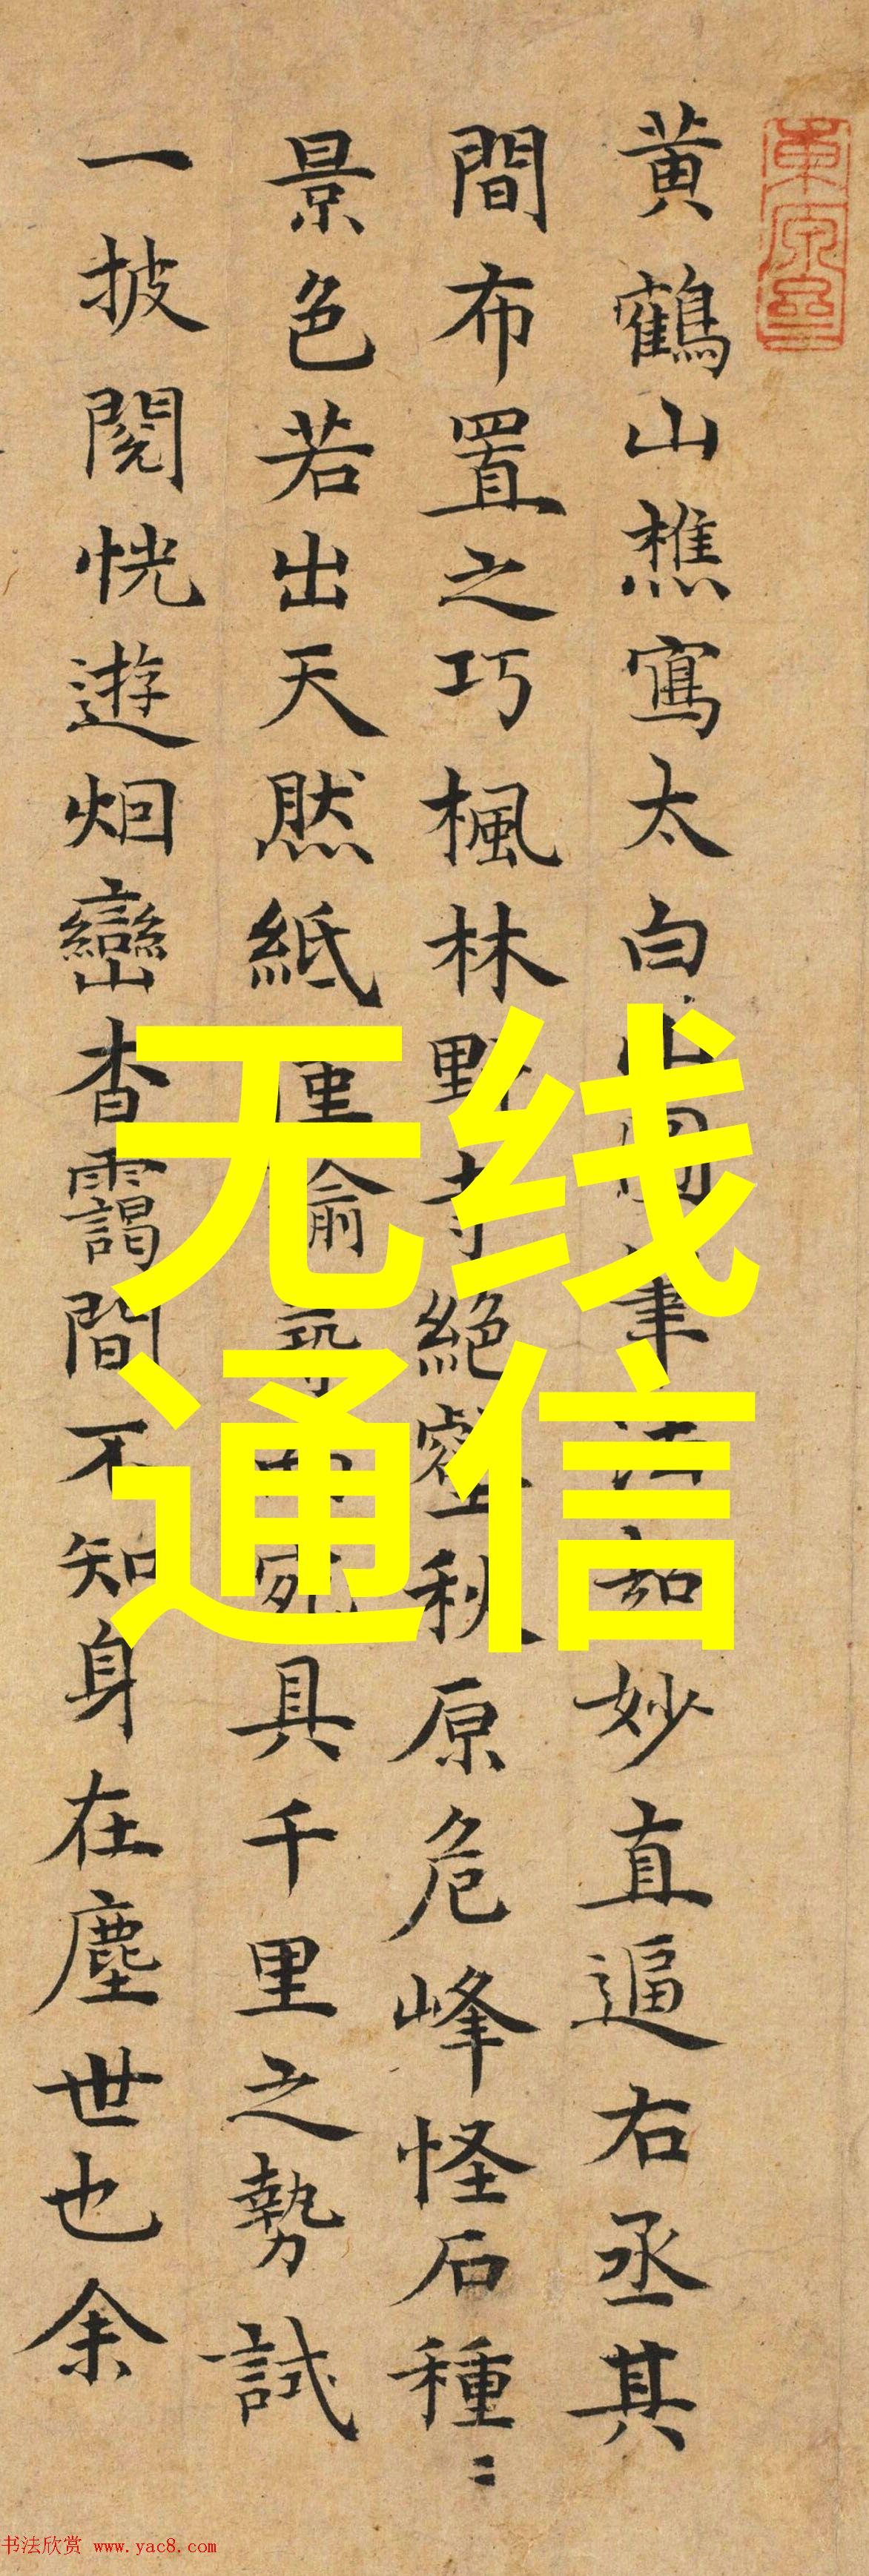 黄鶴山樵寫太白山圖筆法秀妙直逼右丞其
間布置之巧楓林野寺絕壑秋原危峰怪石種〻
景色若出天然紙僅逾尋而宛具千里之勢試
一披閱恍遊烟巒杳靄間不知身在塵世也余
无线
通信
书法欣赏 www.yac8.com